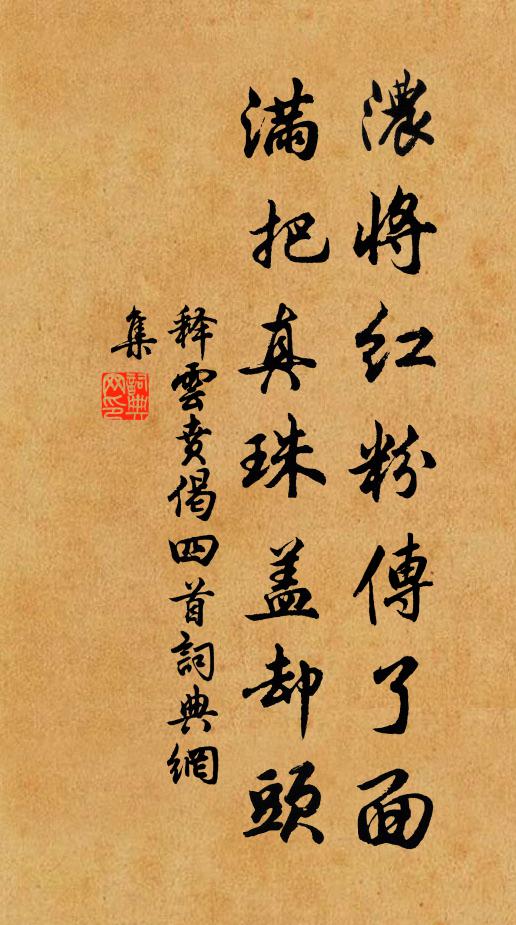 濃將紅粉傅了面
滿把真珠盖却頭
释雲賁偈四首詞典網
集
詞典
网印